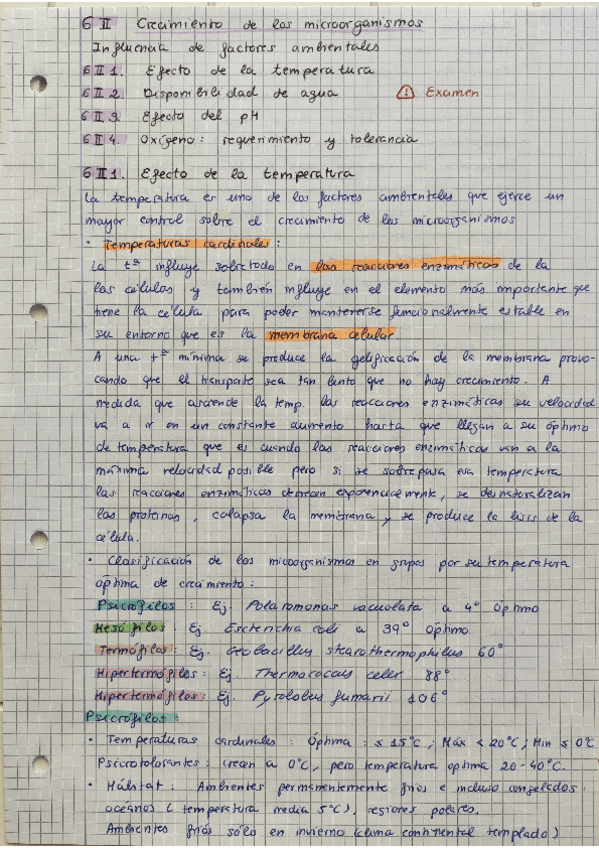 6 II Crecimiento de los microorganismos
Influencia de factores ambientales
6 II 1. Efecto de la temperatura
6 II 2. Disponibilidad de agua Examen
6 II 3. Efecto del pH
6 II 4. Oxígeno: requerimiento y tolerancia
6 II 1. Efecto de la temperatura
La temperatura es uno de los factores ambientales que ejerce un
mayor control sobre el crecimiento de los microorganismos
• Temperaturas cardinales:
La tª influye sobre todo en las reacciones enzimáticas de la
las células y también influye en el elemento más importante que
tiene la célula para poder mantenerse funcionalmente estable en
su entorno que es la membrana celular.
A una tª mínima se produce la gelificación de la membrana provo-
cando que el transporte sea tan lento que no hay crecimiento. A
medida que asciende la temp. las reacciones enzimáticas su velocidad
va a ir en un constante aumento hasta que llegan a su óptimo
de temperatura que es cuando las reacciones enzimáticas van a la
máxima velocidad posible pero si se sobrepasa esa temperatura
las reacciones enzimáticas decrecen exponencialmente, se desnaturalizan
las proteínas, colapsa la membrana y se produce la lisis de la
célula.
• Clasificación de los microorganismos en grupos por su temperatura
óptima de crecimiento:
Psicrófilos: Ej. Polaromonas vacuolata a 4º óptimo
Mesófilos: Ej Escherichia coli a 39º óptimo
Termófilos: Ej. Geobacillus stearothermophilus 60º
Hipertermófilos: Ej. Thermococcus celer 88º
Hipertermófilos: Ej. Pyrolobus fumarii 106º
Psicrófilos:
• Temperaturas cardinales: Óptima: ≤ 15ºC; Máx < 20ºC; Mín ≤ 0ºC
Psicrotolerantes: crecen a 0ºC, pero temperatura óptima 20-40ºC.
• Hábitat: Ambientes permanentemente fríos e incluso congelados:
océanos (temperatura media 5ºC), regiones polares.
Ambientes fríos sólo en invierno (clima continental templado)